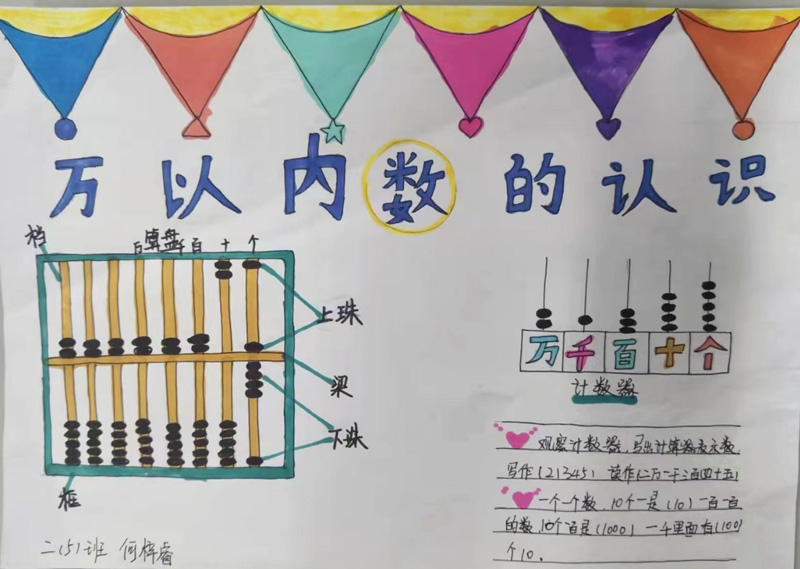 万以内数的认识
档
算盘
万 千 百 十 个
上珠
梁
下珠
框
万 千 百 十 个
计数器
观察计数器,写出计算器表示数,
写作(21345) 读作(二万一千三百四十五)
一个一个数,10个一是(10) 一百一百
的数,10个百是(1000) 一千里面有(100)
个10。
二(5)班 何梓睿